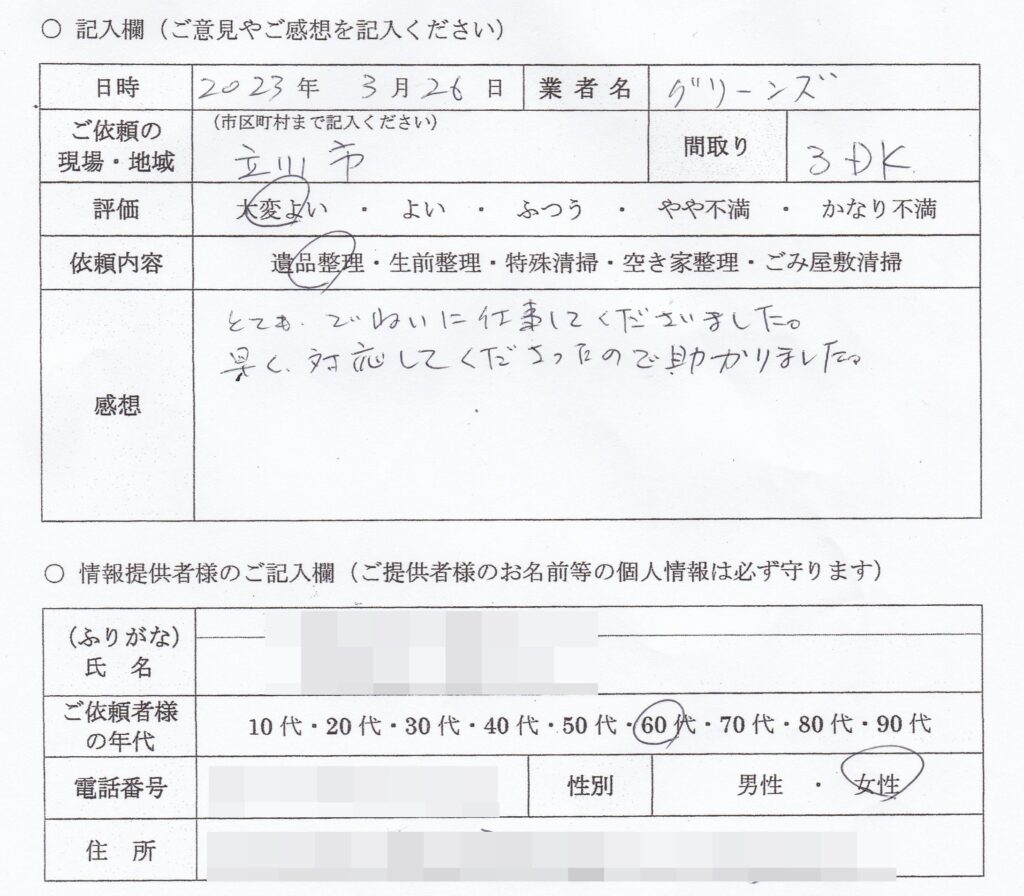 ○ 記入欄（ご意見やご感想を記入ください）
日時 2023年 3月26日 業者名 グリーンズ
ご依頼の現場・地域 （市区町村まで記入ください） 立川市 間取り 3DK
評価 大変よい ・ よい ・ ふつう ・ やや不満 ・ かなり不満
依頼内容 遺品整理・生前整理・特殊清掃・空き家整理・ごみ屋敷清掃
とても、ていねいに仕事してくださいました。
早く、対応してくださったので助かりました。
感想
○ 情報提供者様のご記入欄（ご提供者様のお名前等の個人情報は必ず守ります）
（ふりがな）
氏 名
ご依頼者様の年代 10代・20代・30代・40代・50代・60代・70代・80代・90代
電話番号 性別 男性 ・ 女性
住 所